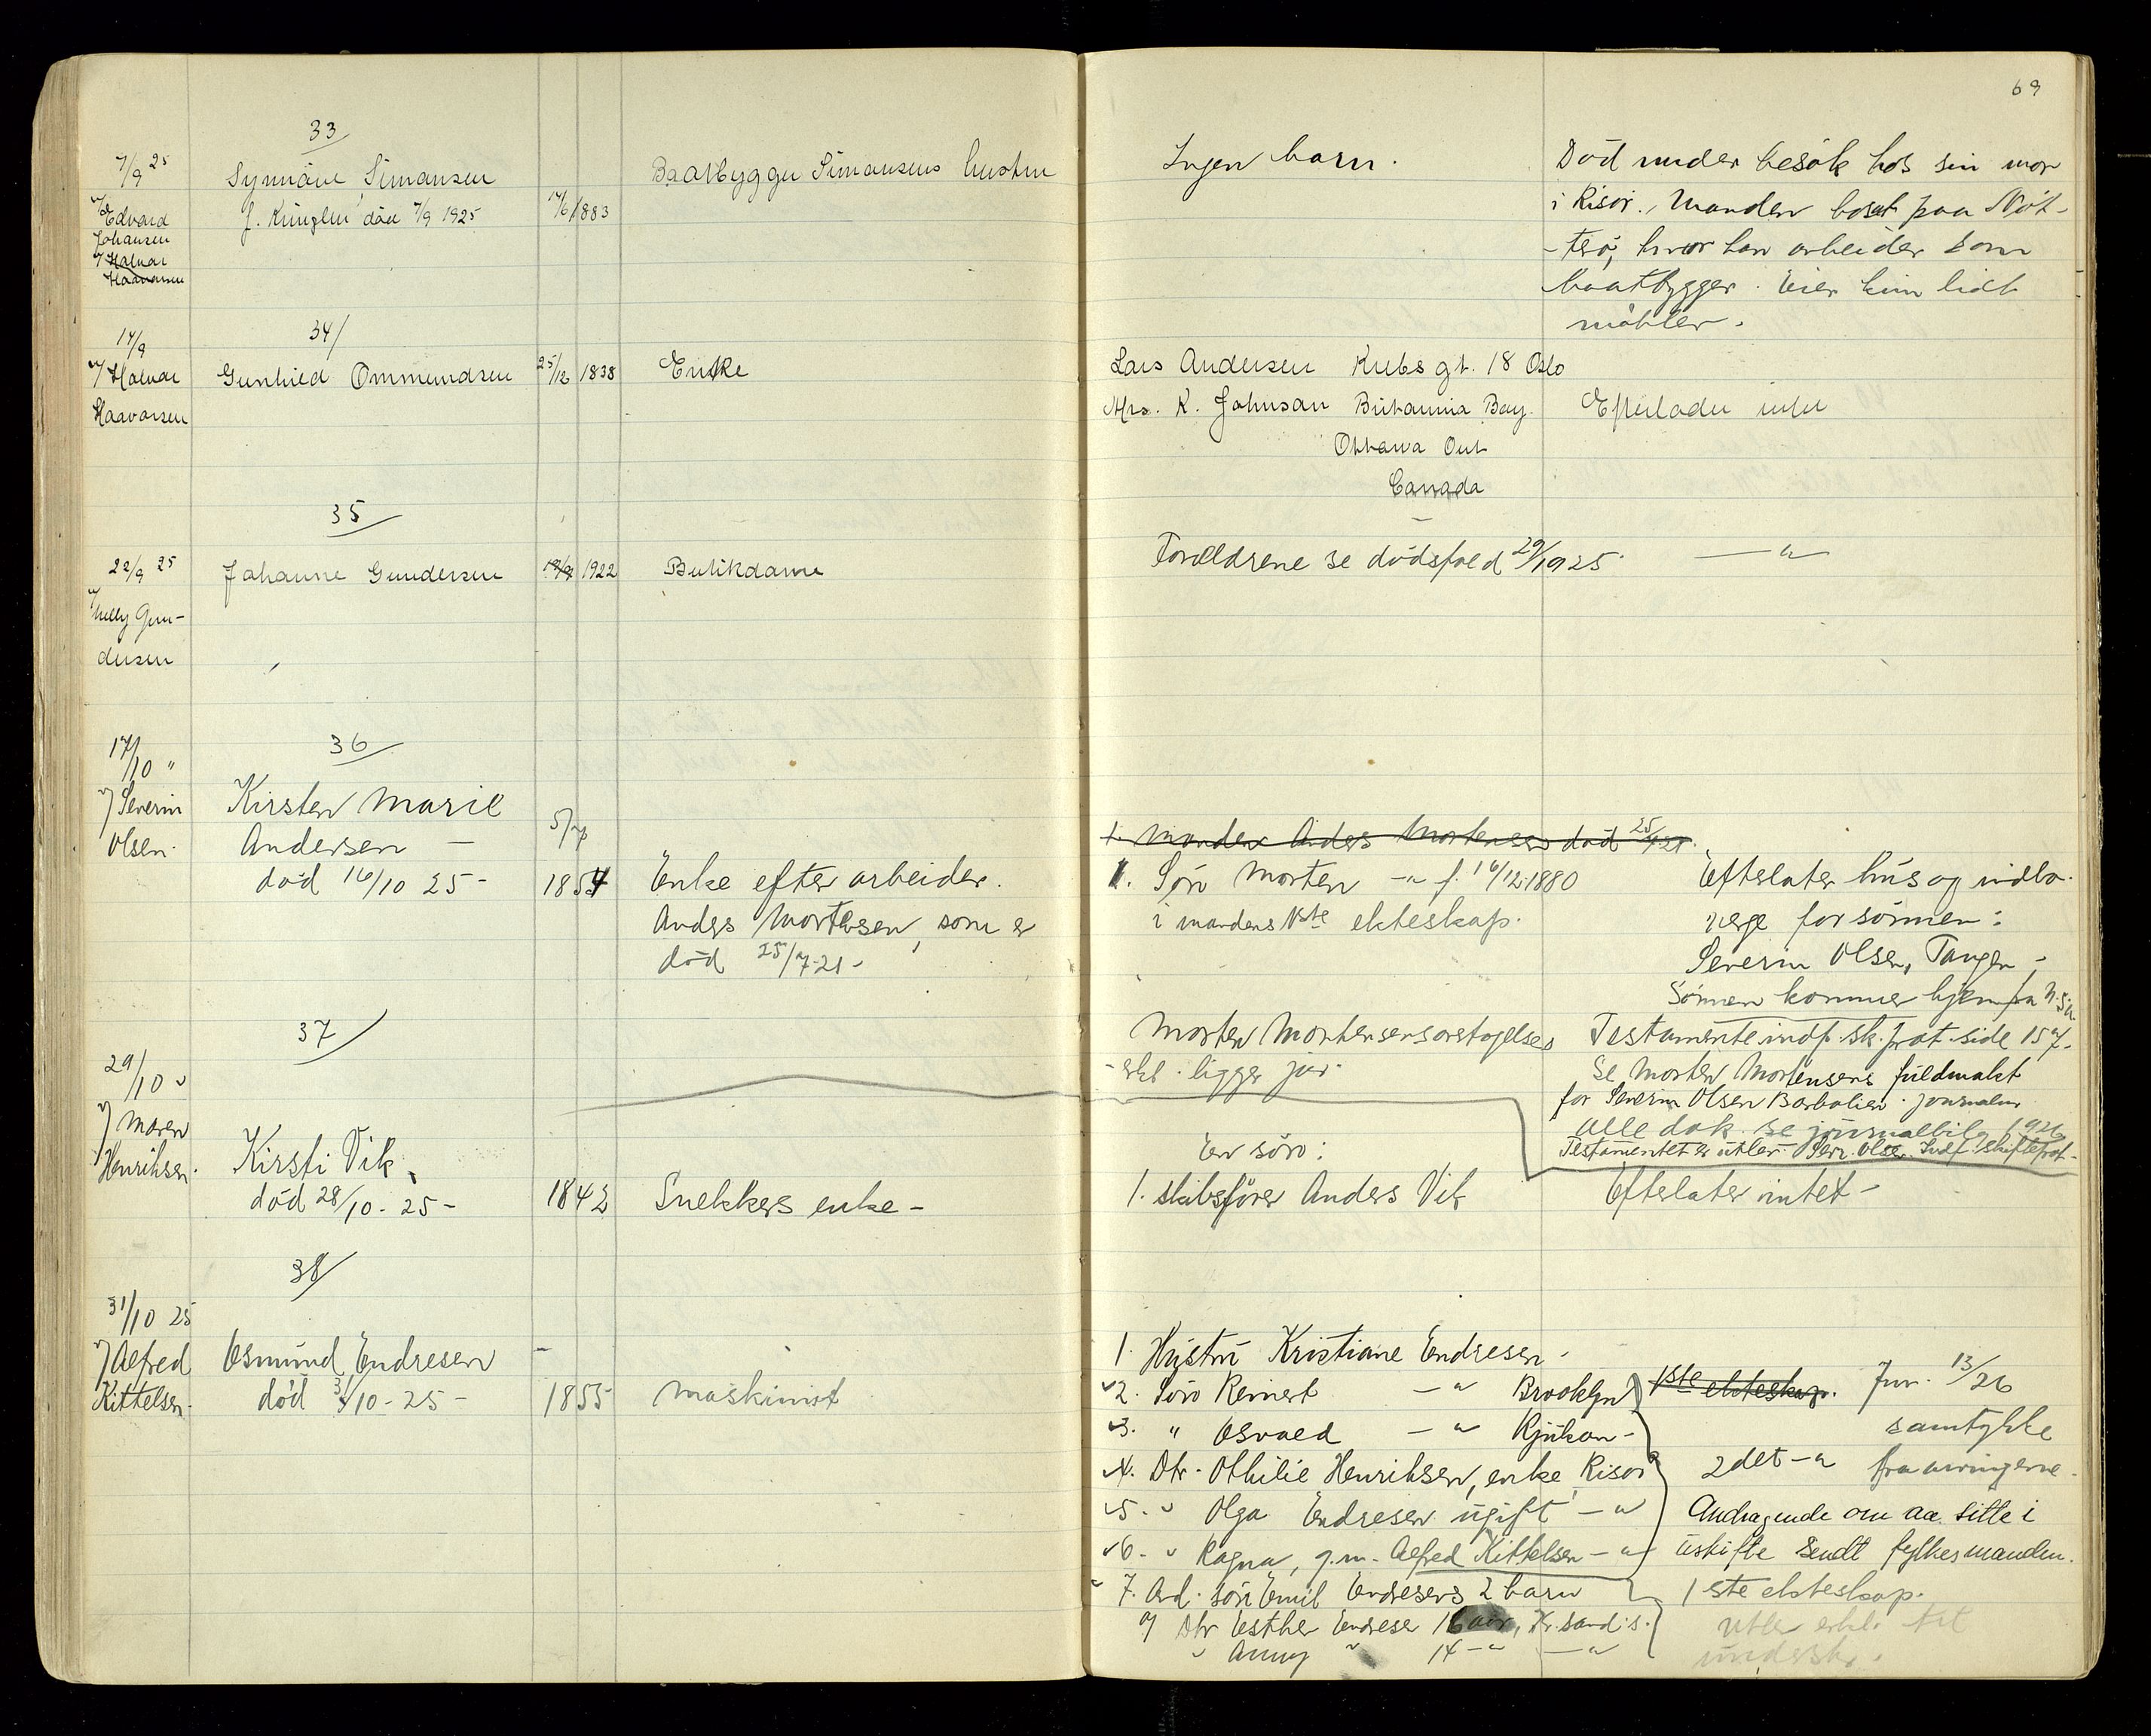 69
33
7/9 25
v/ Edvard
Johansen
v/ Halvar
Haavorsen
Synnöve Simonsen
f. död 7/9 1925
17/6 1883
Baatbygger Simonsens hustru
Ingen barn.
Död under besök hos sin mor
i Risör. Manden bosat paa Nöt-
-terö, hvor han arbeider som
baatbygger. Eier kun lidt
möbler.
34/
14/9
v/ Halvar
Haavorsen
Gunhild Ommundsen
25/12 1838
Enke
Lars Andersen Kubs gt. 18 Oslo
Mrs. K. Johnson Britannia Bay
Ottawa Ont
Canada
Efterlader intet
35
22/9 25
v/ Nelly Gun-
dersen
Johanne Gundersen
1922
Butikdame
Forældrene se dödsfald 29/1925.
— " —
36
17/10 "
v/ Severin
Olsen
Kirsten Marie
Andersen —
död 16/10 25 -
5/7
1854
Enke efter arbeider.
Anders Mortensen, som er
död 25/7-21 -
1. Manden Anders Mortensen död 25/7 21.
1. Sön Morten — " f. 16/12.1880
i mandens 1ste ekteskap.
Efterlater hus og indbo.
verge for sönnen:
Severin Olsen, Tangen -
Sönnen kommer hjem fra U.S.A.
Morten Mortensens arvtagelses
-erkl. ligger
Testamente indf. sk. prot. side 157.
Se Morten Mortensens fuldmakt
for Severin Olsen Barbalien journalnr
alle dok. se journalbil. 1926
Testamentet er utlev. Sev. Olsen. Indf. skifteprot.
37
29/10 "
v/ Maren
Henriksen.
Kirsti Vik,
död 28/10 - 25 -
1842
Snekkers enke -
En sön:
1. skibsförer Anders Vik
Efterlater intet -
38
31/10 25
v/ Alfred
Kittelsen
Osmund Endresen
död 31/10 - 25 -
-
1855
maskinist
1. Hustru Kristiane Endresen -
2. Sön Reinert — " Brooklyn
3. " Osvald — " Rjukan -
4. Dtr. Othilie Henriksen, enke, Risör
5. " Olga Endresen ugift — "
6. " Ragna, g.m. Alfred Kittelsen — "
7. Avd. sön Emil Endresens 2 barn
Dtr Esther Endresen 16 aar, Kr.sand s.
" Anny " 14 — " — "
1ste ekteskap.
2det — "
Jnr. 13/26
samtykke
fra arvingerne.
Andragende om aa sitte i
uskifte sendt fylkesmanden.
1ste ekteskap.
utlev. erkl. til
underskr.